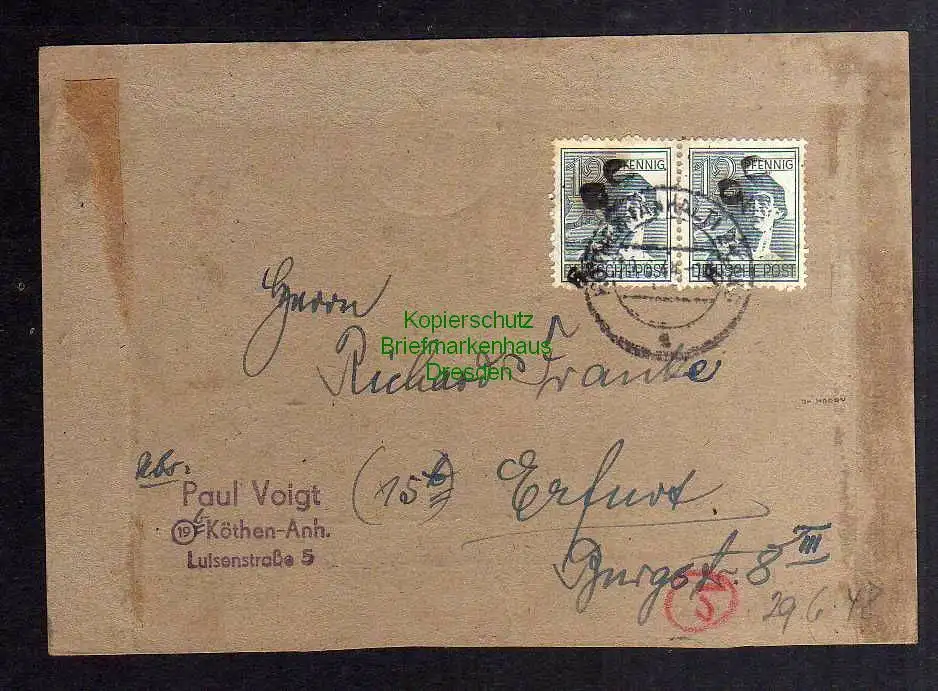 12 PFENNIG
12 PFENNIG
DEUTSCHE POST
DEUTSCHE POST
Herrn
Kopierschutz
Briefmarkenhaus
Dresden
Richard Franke
Abs.
Paul Voigt
(19b) Köthen-Anh.
Luisenstraße 5
(15b) Erfurt
Burgst. 8 III
5
29.6.48